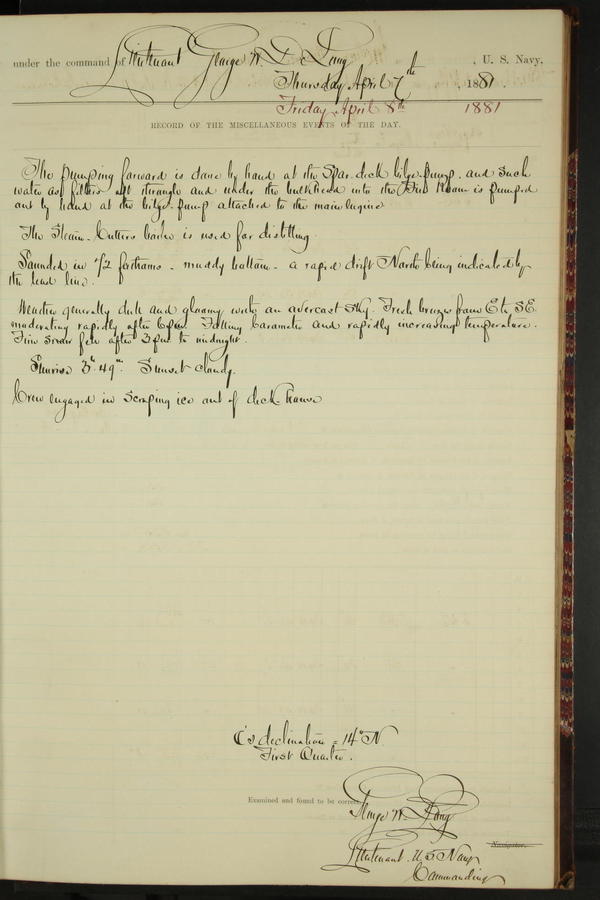 under the command of Lieutenant George W. De Long, U. S. Navy,
Thursday April 7th, 1881.
Friday April 8th 1881
RECORD OF THE MISCELLANEOUS EVENTS OF THE DAY.
The pumping forward is done by hand at the Spar deck bilge-pump. and such
water as filters aft through and under the bulkhead into the Fire Room is pumped
out by hand at the bilge-pump attached to the main engine
The Steam-Cutters boiler is used for distilling.
Sounded in fathoms - muddy bottom - a rapid drift North being indicated by
the lead line.
Weather generally dull and gloomy with an overcast sky. Fresh breeze from E to SE
moderating rapidly after 6 p.m. Falling barometer and rapidly increasing temperature.
Fine snow fell after 3 p.m. to midnight.
Sunrise 49m. Sunset cloudy.
Crew engaged in scraping ice out of deck house
declination = 14° N.
First Quarter.
Examined and found to be correct.
George W. De Long
Navigator.
Lieutenant. U.S. Navy
Commanding